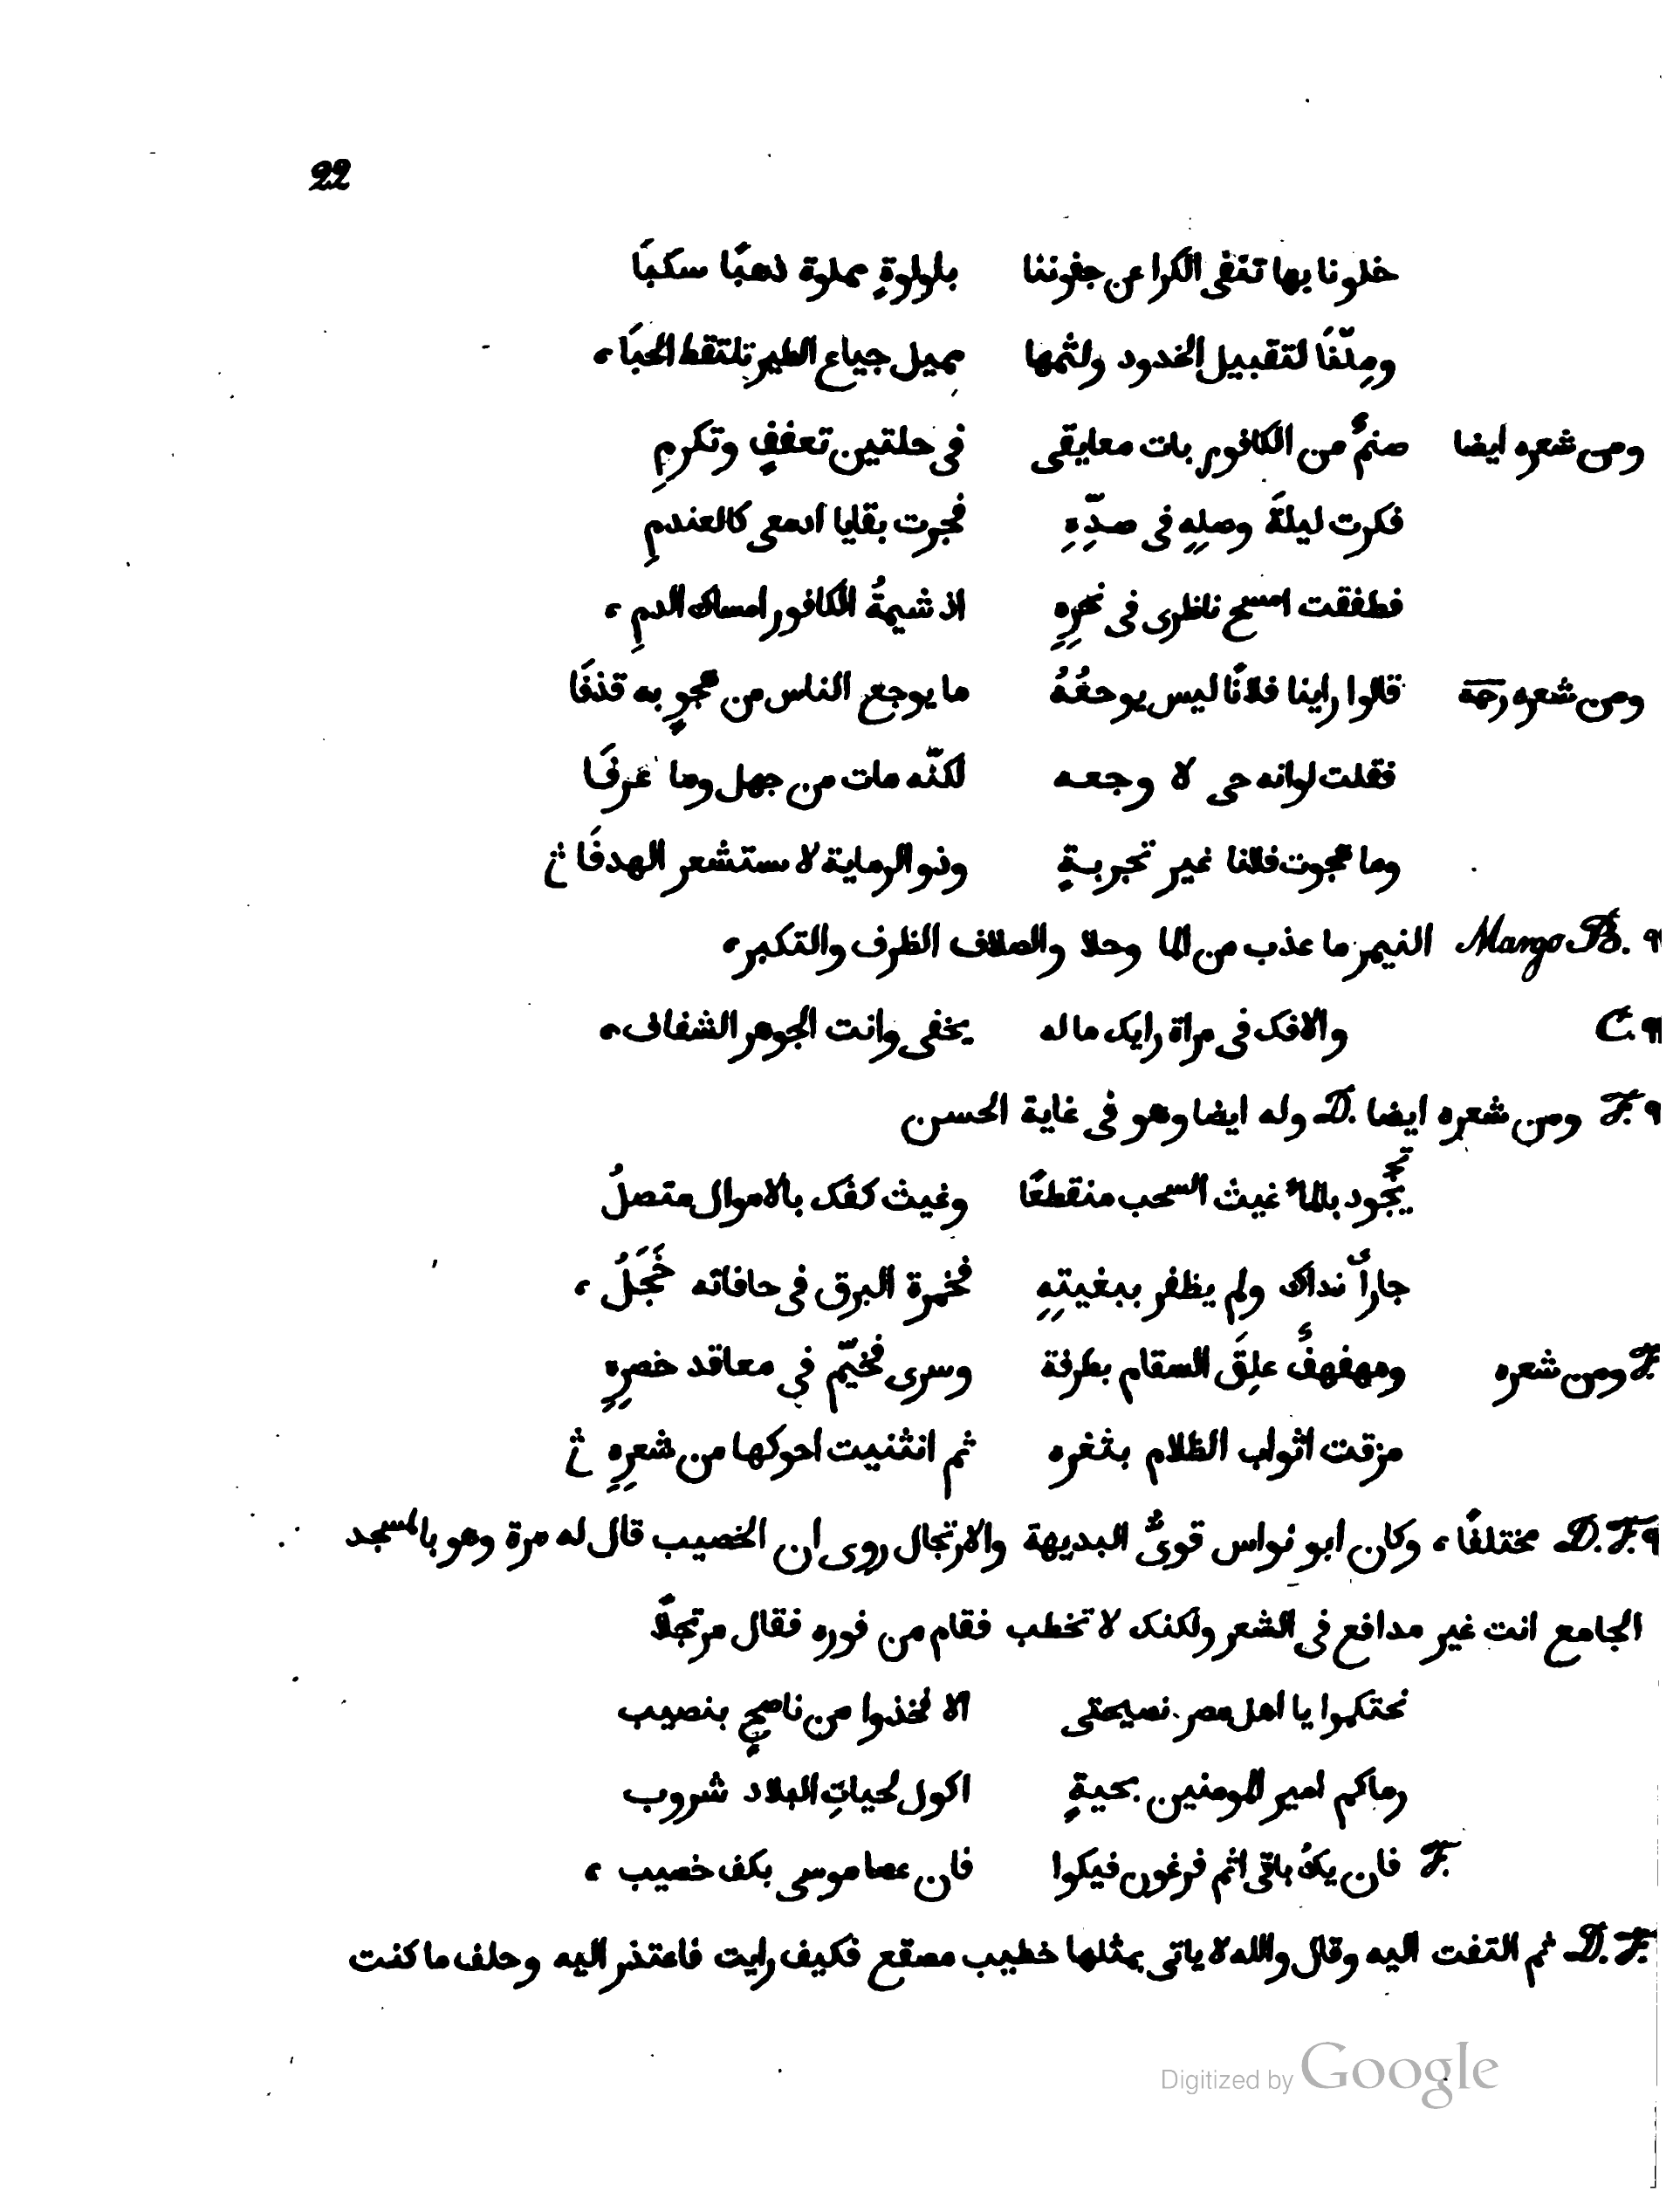 22
خلونا بها تنفى الكرا عن جفوننا بلولوةٍ مملوة ذهبًا سكبَا
ومِلنَّا لتقبيل الخدود ولثمها بميل جياع الطير تلتقط الحبَا،
ومن شعره ايضا صنمٌ من الكافور بات معايقى فى حلتين تعففٍ وتكرمِ
فكرت ليلةَ وصلِهِ فى صدِّهِ فجرت بقايا ادمعى كالعندمِ
فطفقت امسح ناظرى فى نحرِهِ اذ شيمةُ الكافور امساك الدمِ،
ومن شعره رحمة قالوا راينا فلانًا ليس يوجعُهُ ما يوجع الناس من هجوٍ به قذفَا
فقلت لو انه حى لا وجعه لكنّه مات من جهل وما عرفَا
وما هجوت فلانا غير تجربةٍ وذو الرماية لا ستشعر الهدفَا
Margo B. ٩ النيمر ما عذب من الما وحلا والصلاف الظرف والتكبر،
C. ٩ والافك فى مراة رايك ماله يخفى وانت الجوهر الشفاف،
F. ٩ ومن شعره ايضا D. وله ايضا وهو فى غاية الحسن
يجُود بالماء غيث السحب منقطعًا وغيث كفك بالاموال متصلُ
جاراً نداك ولم يظفر ببغيتِهِ فخمرة البرق فى حافاته خَجَلُ،
F. ومن شعره ومهفهفٌ علِقَ السقام بطرفة وسرى فخيّم في معاقد خصرِهِ
مزقت اثواب الظلام بثغره ثم انثنيت احوكها من شعرِهِ
D. F. ٩ مختلفًا، وكان ابو نواس قوىّ البديهة والارتجال روى ان الخصيب قال له مرة وهو بالمسجد
الجامع انت غير مدافع فى الشعر ولكنك لا تخطب فقام من فوره فقال مرتجلًا
نحتكموا يا اهل مصر نصيحتى الا فخذوا من ناصحٍ بنصيب
رماكم امير المومنين بحيةٍ اكول لحياتِ البلاد شروب
F. فان يكُ باقى اثم فرغون فيكوا فان عصا موسى بكف خصيب،
D. F. ثم التفت اليه وقال والله لا ياتى بمثلها خطيب مصقع فكيف رايت فاعتذر اليه وحلف ما كنت
Digitized by Google